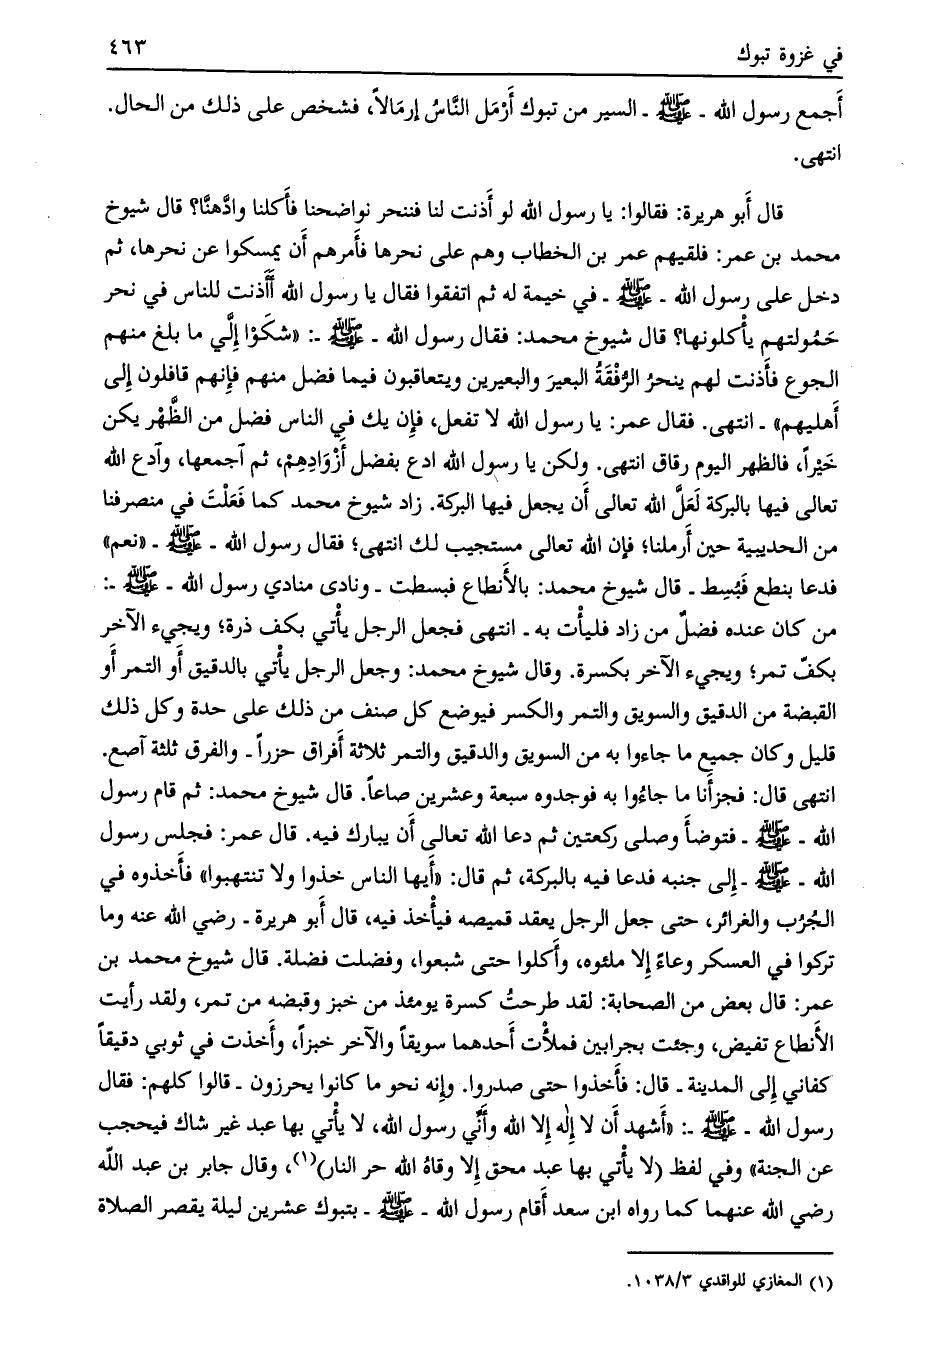 في غزوة تبوك ٤٦٣
أَجمع رسول الله ـ ﷺ ـ السير من تبوك أَرْمَل النَّاسُ إرمَالاً، فشخص على ذلك من الحال.
انتهى.
قال أَبو هريرة: فقالوا: يا رسول الله لو أَذنت لنا فننحر نواضحنا فأَكلنا وادَّهنَّا؟ قال شيوخ
محمد بن عمر: فلقيهم عمر بن الخطاب وهم على نحرها فأَمرهم أَن يمسكوا عن نحرها، ثم
دخل على رسول الله ـ ﷺ ـ في خيمة له ثم اتفقوا فقال يا رسول الله أَأَذنت للناس في نحر
حَمُولتهم يأْكلونها؟ قال شيوخ محمد: فقال رسول الله ـ ﷺ ـ: «شكَوْا إِلَّي ما بلغ منهم
الجوع فأَذنت لهم ينحرُ الرُّفْقَةُ البعيرَ والبعيرين ويتعاقبون فيما فضل منهم فإِنهم قافلون إِلى
أَهليهم» ـ انتهى. فقال عمر: يا رسول الله لا تفعل، فإِن يك في الناس فضل من الظَّهْر يكن
خَيْراً، فالظهر اليوم رقاق انتهى. ولكن يا رسول الله ادع بفضل أَزْوَادِهِمْ، ثم آجمعها، وآدع الله
تعالى فيها بالبركة لَعَلَّ الله تعالى أَن يجعل فيها البركة. زاد شيوخ محمد كما فَعَلْتَ في منصرفنا
من الحديبية حين أَرملنا؛ فإِن الله تعالى مستجيب لك انتهى؛ فقال رسول الله ـ ﷺ ـ «نعم»
فدعا بنطع فَبُسِط ـ قال شيوخ محمد: بالأَنطاع فبسطت ـ ونادى منادي رسول الله ـ ﷺ ـ:
من كان عنده فضلٌ من زاد فليأْت به ـ انتهى فجعل الرجل يأْتي بكف ذرة؛ ويجيء الآخر
بكفّ تمر؛ ويجيء الآخر بكسرة. وقال شيوخ محمد: وجعل الرجل يأْتي بالدقيق أَو التمر أَو
القبضة من الدقيق والسويق والتمر والكسر فيوضع كل صنف من ذلك على حدة وكل ذلك
قليل وكان جميع ما جاءوا به من السويق والدقيق والتمر ثلاثة أَفراق حزراً ـ والفرق ثلثة آصع.
انتهى قال: فجزأَنا ما جاءُوا به فوجدوه سبعة وعشرين صاعاً. قال شيوخ محمد: ثم قام رسول
الله ـ ﷺ ـ فتوضأَ وصلى ركعتين ثم دعا الله تعالى أَن يبارك فيه. قال عمر: فجلس رسول
الله ـ ﷺ ـ إِلى جنبه فدعا فيه بالبركة، ثم قال: «أَيها الناس خذوا ولا تنتهبوا» فأَخذوه في
الجُرُب والغرائر، حتى جعل الرجل يعقد قميصه فيأْخذ فيه، قال أَبو هريرة ـ رضي الله عنه وما
تركوا في العسكر وعاءً إِلا ملئوه، وأَكلوا حتى شبعوا، وفضلت فضلة. قال شيوخ محمد بن
عمر: قال بعض من الصحابة: لقد طرحتُ كسرة يومئذ من خبز وقبضه من تمر، ولقد رأَيت
الأَنطاع تفيض، وجئت بجرابين فملأْت أَحدهما سويقاً والآخر خبزاً، وأَخذت في ثوبي دقيقاً
كفاني إِلى المدينة ـ قال: فأَخذوا حتى صدروا. وإِنه نحو ما كانوا يحرزون ـ قالوا كلهم: فقال
رسول الله ـ ﷺ ـ: «أَشهد أَن لا إِلٰه إِلا الله وأَنِّي رسول الله، لا يأْتي بها عبد غير شاك فيحجب
عن الجنة» وفي لفظ (لا يأْتي بها عبد محق إِلا وقاهُ الله حر النار)(١)، وقال جابر بن عبد اللّه
رضي الله عنهما كما رواه ابن سعد أَقام رسول الله ـ ﷺ ـ بتبوك عشرين ليلة يقصر الصلاة
(١) المغازي للواقدي ١٠٣٨/٣.